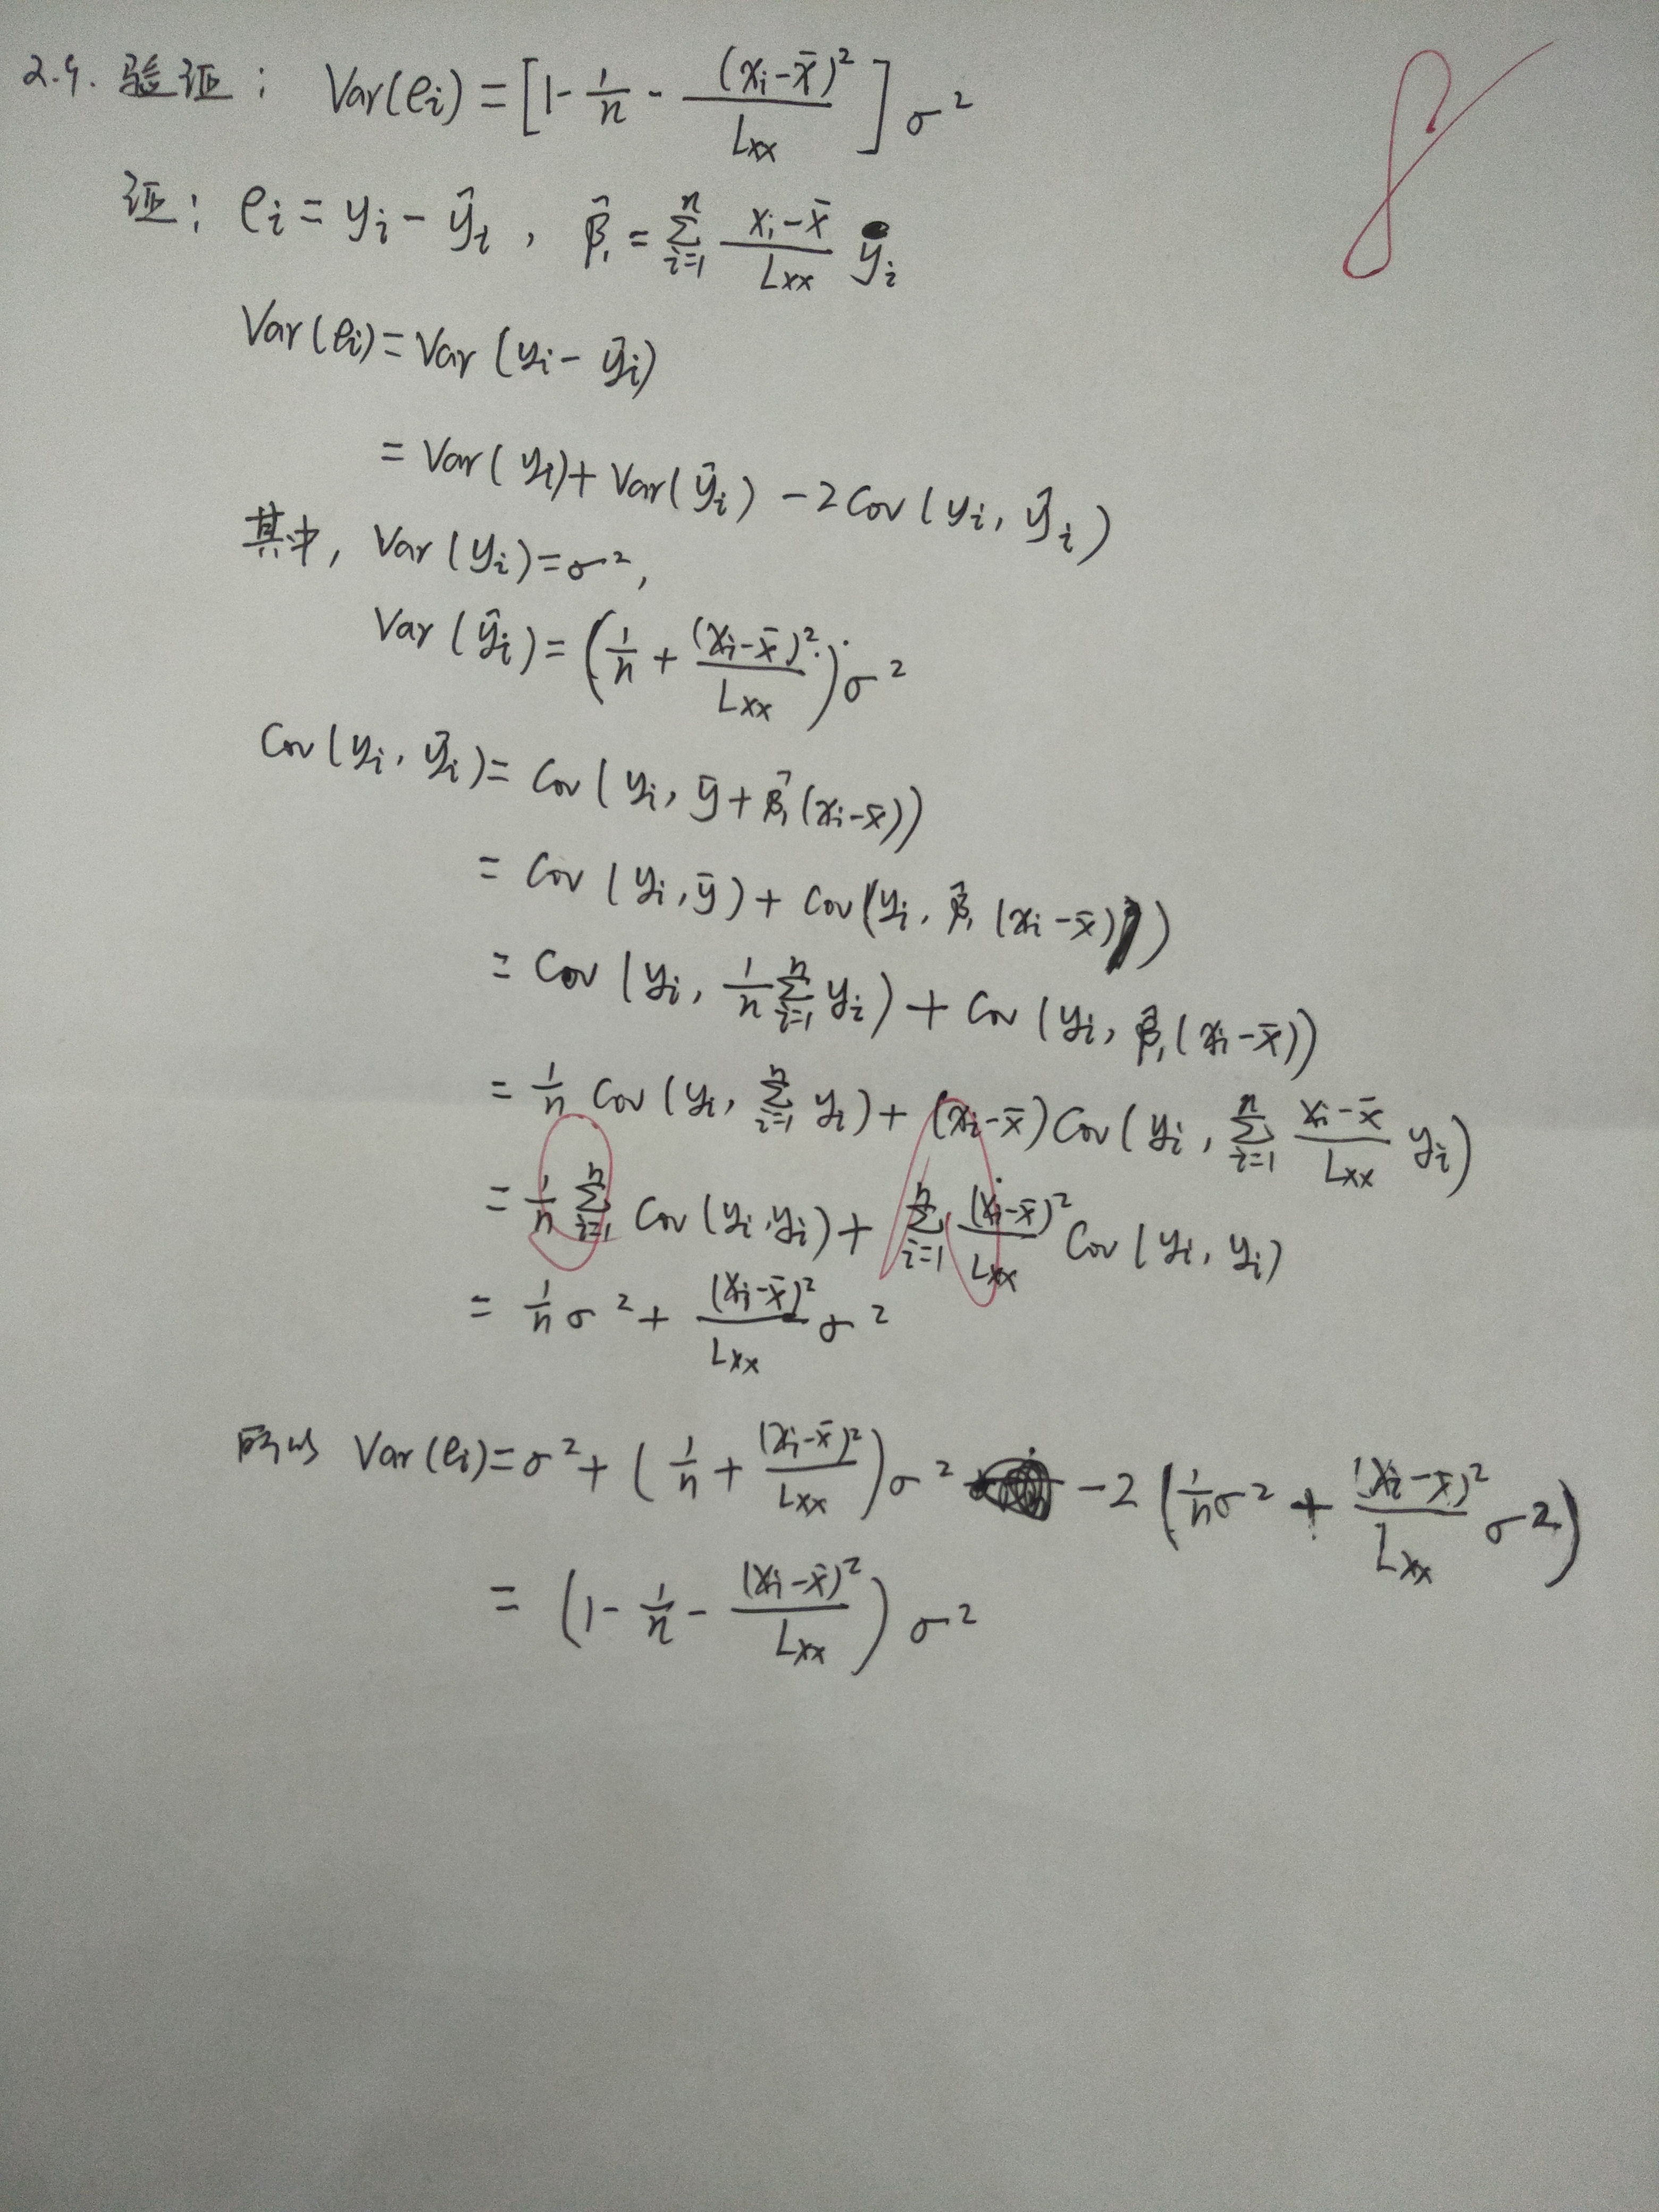 2.9. 验证: Var(ei) = [1 - 1/n - (xi-x̄)²/Lxx] σ²
证: ei = yi - ŷi , β̂₁ = ∑_{i=1}^{n} (xi-x̄)/Lxx yi
Var(ei) = Var(yi - ŷi)
= Var(yi) + Var(ŷi) - 2Cov(yi, ŷi)
其中, Var(yi) = σ²,
Var(ŷi) = (1/n + (xi-x̄)²/Lxx)σ²
Cov(yi, ŷi) = Cov(yi, ȳ + β̂₁(xi-x̄))
= Cov(yi, ȳ) + Cov(yi, β̂₁(xi-x̄))
= Cov(yi, 1/n ∑_{i=1}^{n} yi) + Cov(yi, β̂₁(xi-x̄))
= 1/n Cov(yi, ∑_{i=1}^{n} yi) + (xi-x̄)Cov(yi, ∑_{i=1}^{n} (xi-x̄)/Lxx yi)
= 1/n ∑_{i=1}^{n} Cov(yi, yi) + ∑_{i=1}^{n} (xi-x̄)²/Lxx Cov(yi, yi)
= 1/n σ² + (xi-x̄)²/Lxx σ²
所以 Var(ei) = σ² + (1/n + (xi-x̄)²/Lxx)σ² - 2(1/n σ² + (xi-x̄)²/Lxx σ²)
= (1 - 1/n - (xi-x̄)²/Lxx) σ²